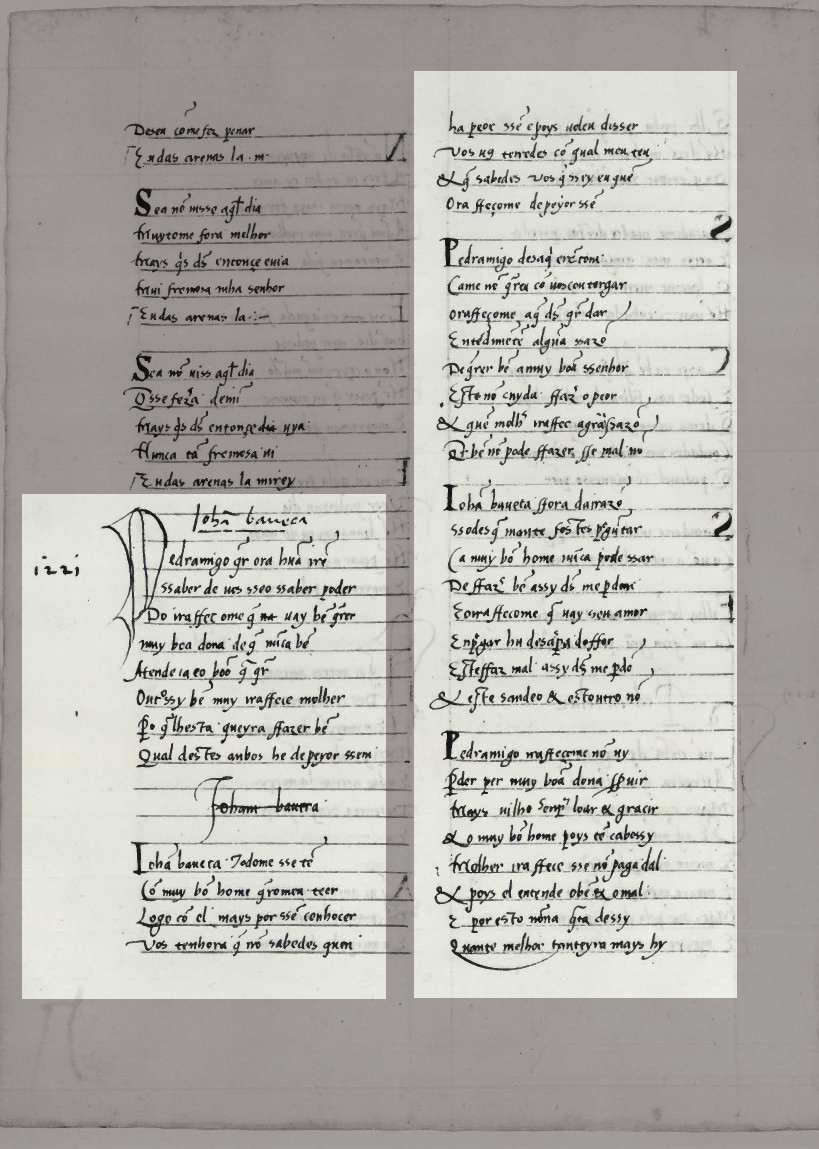 Deseu cőme fez penar
Eudas arenas la .m.
Sea nő uisse aql̃ dia
Muytome fora melhor
Mays q̃s ds̃ entonçe euia
Mui fremosa mha senhor
Eudas arenas la .:~
Sea nő uiss aql̃ dia
Qsse feza demi
Mays q̃s ds̃ entonçe dia uya
Nunca tã fremosa ui
Eudas arenas la mirey
Johã baueca
1221
Pedramigo q̃r ora huã rrẽ
ssaber de ues sseo ssaber poder
Do rraffeç ome q̃ na uay bẽ q̃rer
muy boa dona de q̃ nũca bẽ
Atende ia eo boõ q̃ q̃r
Outºssy bẽ muy rraffeçe molher
P̃o q̃ lhesta queyra ffazer bẽ
Qual destes anbos he de peyor ssem
Joham bauera
Iohã baueca Todome sse tẽ
Cő muy bő home q̃romen teer
Logo cő el mays por ssẽ conhocer
Vos tenhora q̃ nő sabedes quen
ha peor ssẽ e poys uoleu disser
Vos ug̃ terredes cő qual meu teu
& q̃ sabedes vos q̃ ssey eu quẽ
Ora ffeçome de peyor ssẽ
Pedramigo desaq̃ erẽtom
Ca me nő q̃reu cő uoscou torgar
orraffeçome aq̃ ds̃ q̃r dar
Entẽdimẽtẽ algũa ssaző
De q̃rer bẽ a muy boã ssenhor
Este nő cuyda ffaz̃ o peor
& quẽ molh̃ rraffec agrã ssaző
Q̃r bẽ nő pode ffazer sse mal nő
Iohã baueca ffora da rraző
ssodes q̃ mante fostes p̃gũtar
Ca muy bő home nũca pode ssar
De ffaz̃ bẽ assy ds̃ me p̃don
E orraffeçome q̃ uay seu amor
Enp̃gar hu desasp̃a doffor
Este ffaz mal assy ds̃ me p̃dő
& este sandeo & estoutro nő
Pedramigo rraffeçome nő uy
P̃der per muy boã dona s̃uir
Mays uilho senp̃ loar & gracir
& o muy bő home poys tẽ cabossy
Molher rraffeçe sse nő paga dal
& poys el entende obẽ & omal
E por esto nőna q̃ta dessy
Quante melhor tanteyra mays hy